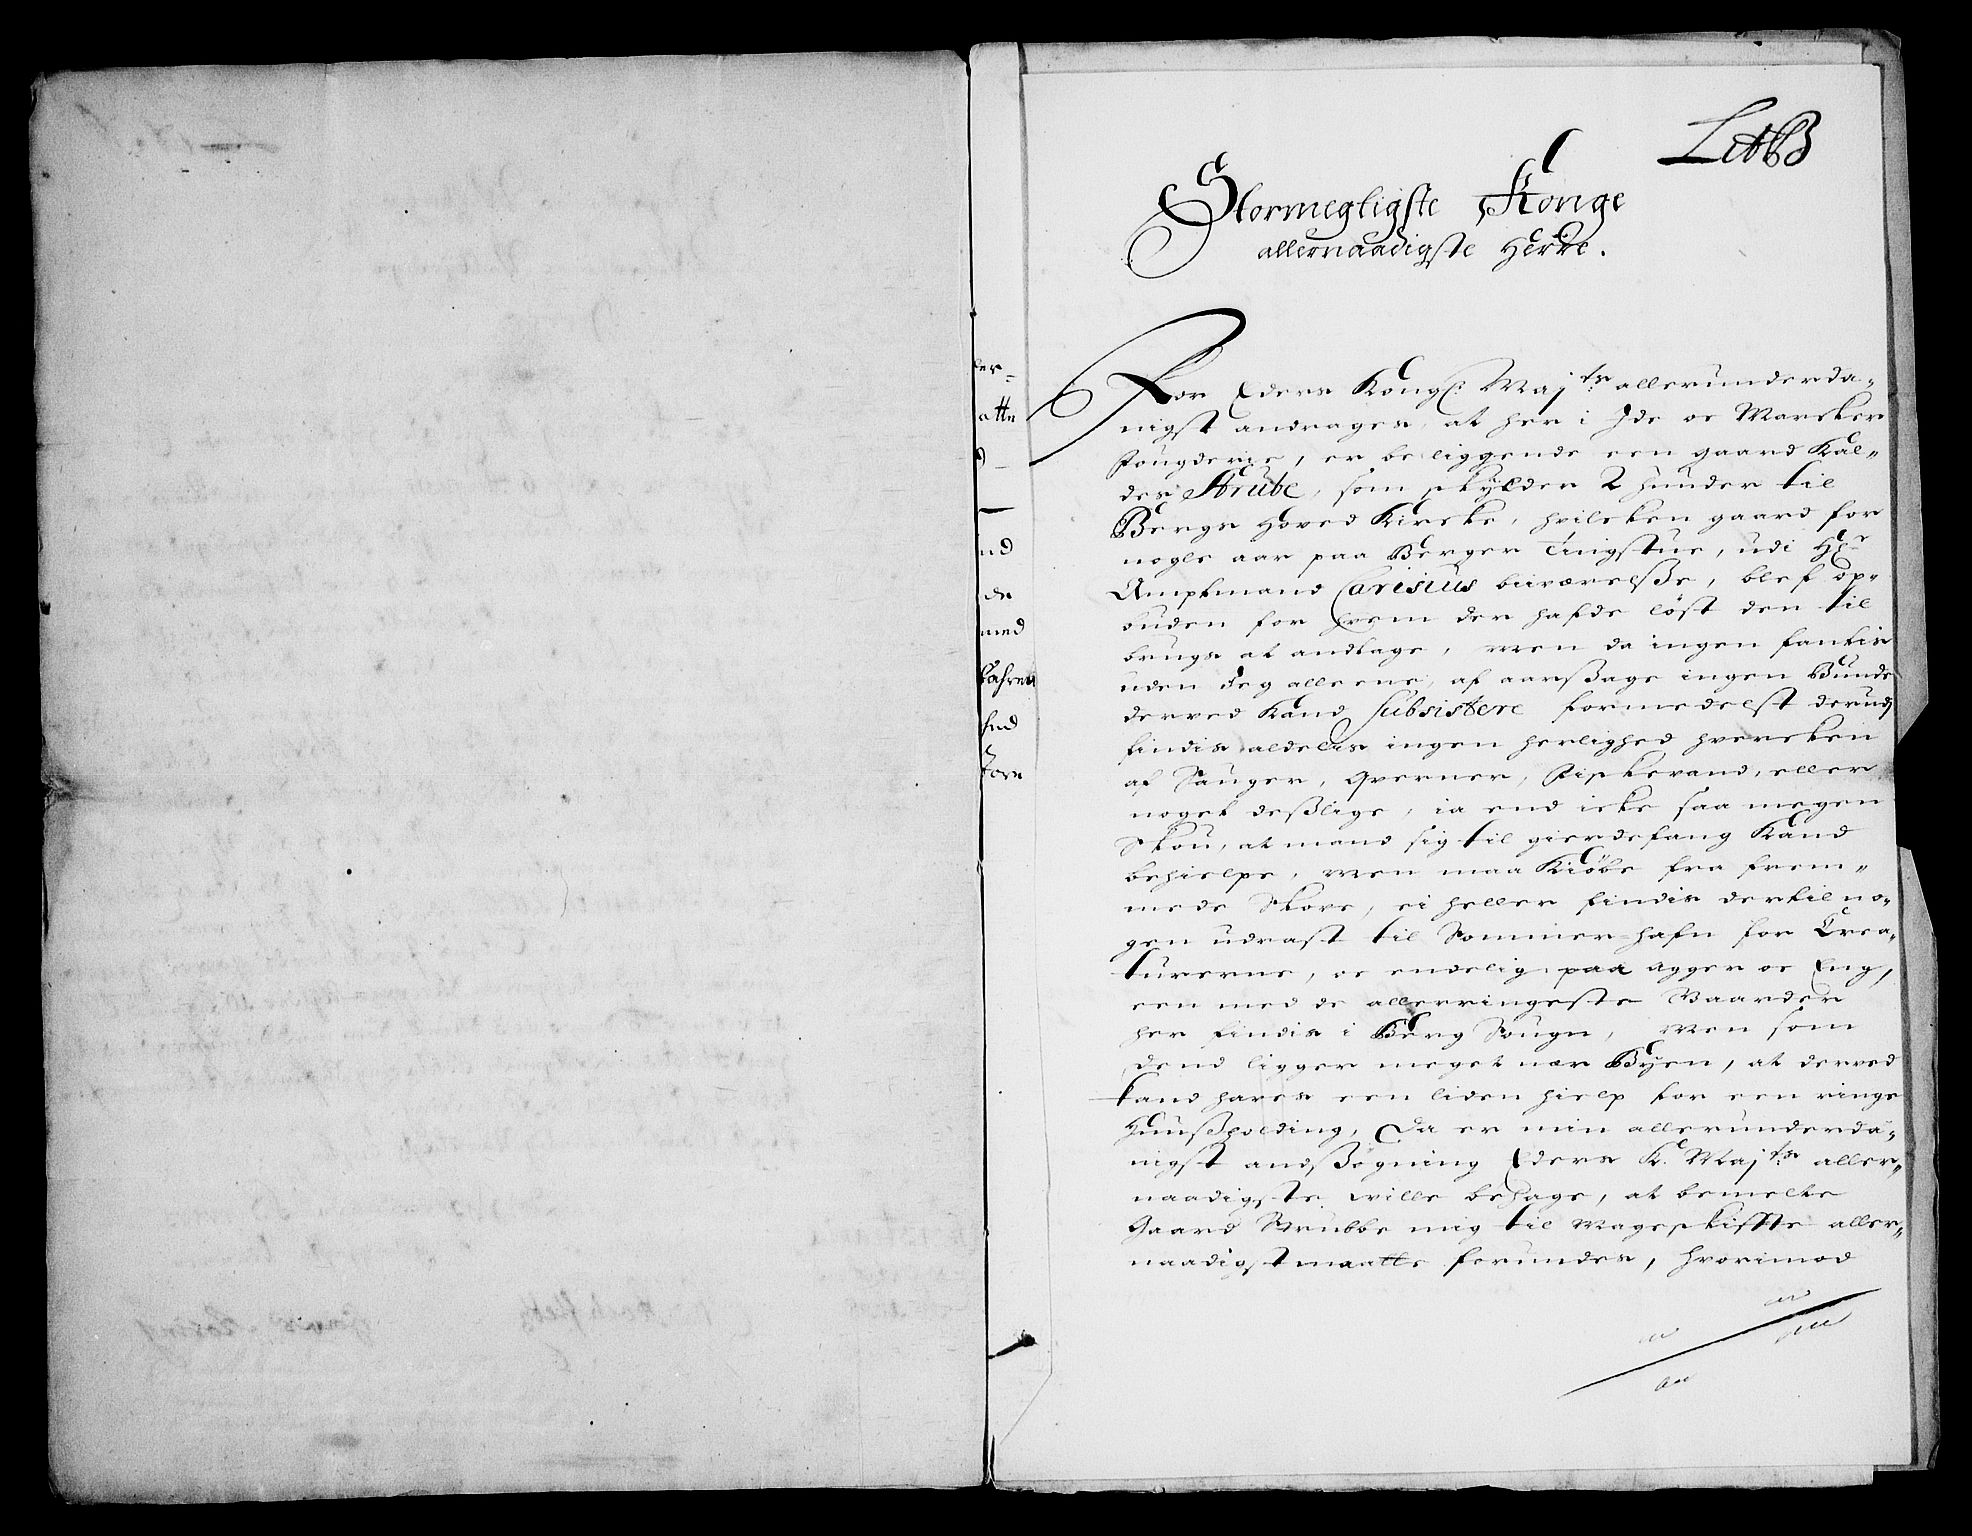 Litt B
Stormegtigste Konge
allernaadigste Herre.
For Eders Kongl: Maj:ts allerunderda-
nigst andrages, at her i Ide oc Marcker
fougderie, er beliggende een gaard Kal-
des Strube, som skylder 2 hunder til
Bergs Hoved Kircke, hvilcken gaard for
nogle aar paa Berger Tingstue, udi Hr
Amptmand Carisius biiværelsse, blef op-
buden for hvem der hafde löst den til
brugs at andtage, men da ingen fantis
uden Jeg alleene, af aarsßage ingen Bunde
derved Kand subsistere formedelst derudj
findis aldelis ingen herlighed hvercken
af Sauger, Qverner, Fiskevand, eller
noget deßlige, ia end icke saa megen
Skou, at mand sig til gierdefang Kand
behielpe, men maa Kiöbe fra frem-
mede Skove, ei heller findis dertil no-
gen udrast til Sommer hafn for Crea-
turerne, oc endelig paa Agger oc Eng,
een med de allerringeste Gaarder
her findis i Berg Sougn, Men som
dend ligger meget nær Byen, at derved
kand haves een liden hielp for een ringe
Huußholding, Da er min allerunderda-
nigst andßögning Eders K. Maj:ts aller-
naadigste wille behage, at bemelte
Gaard Strubbe mig til Mageskiffte aller-
naadigst maatte forundes, hvorimod